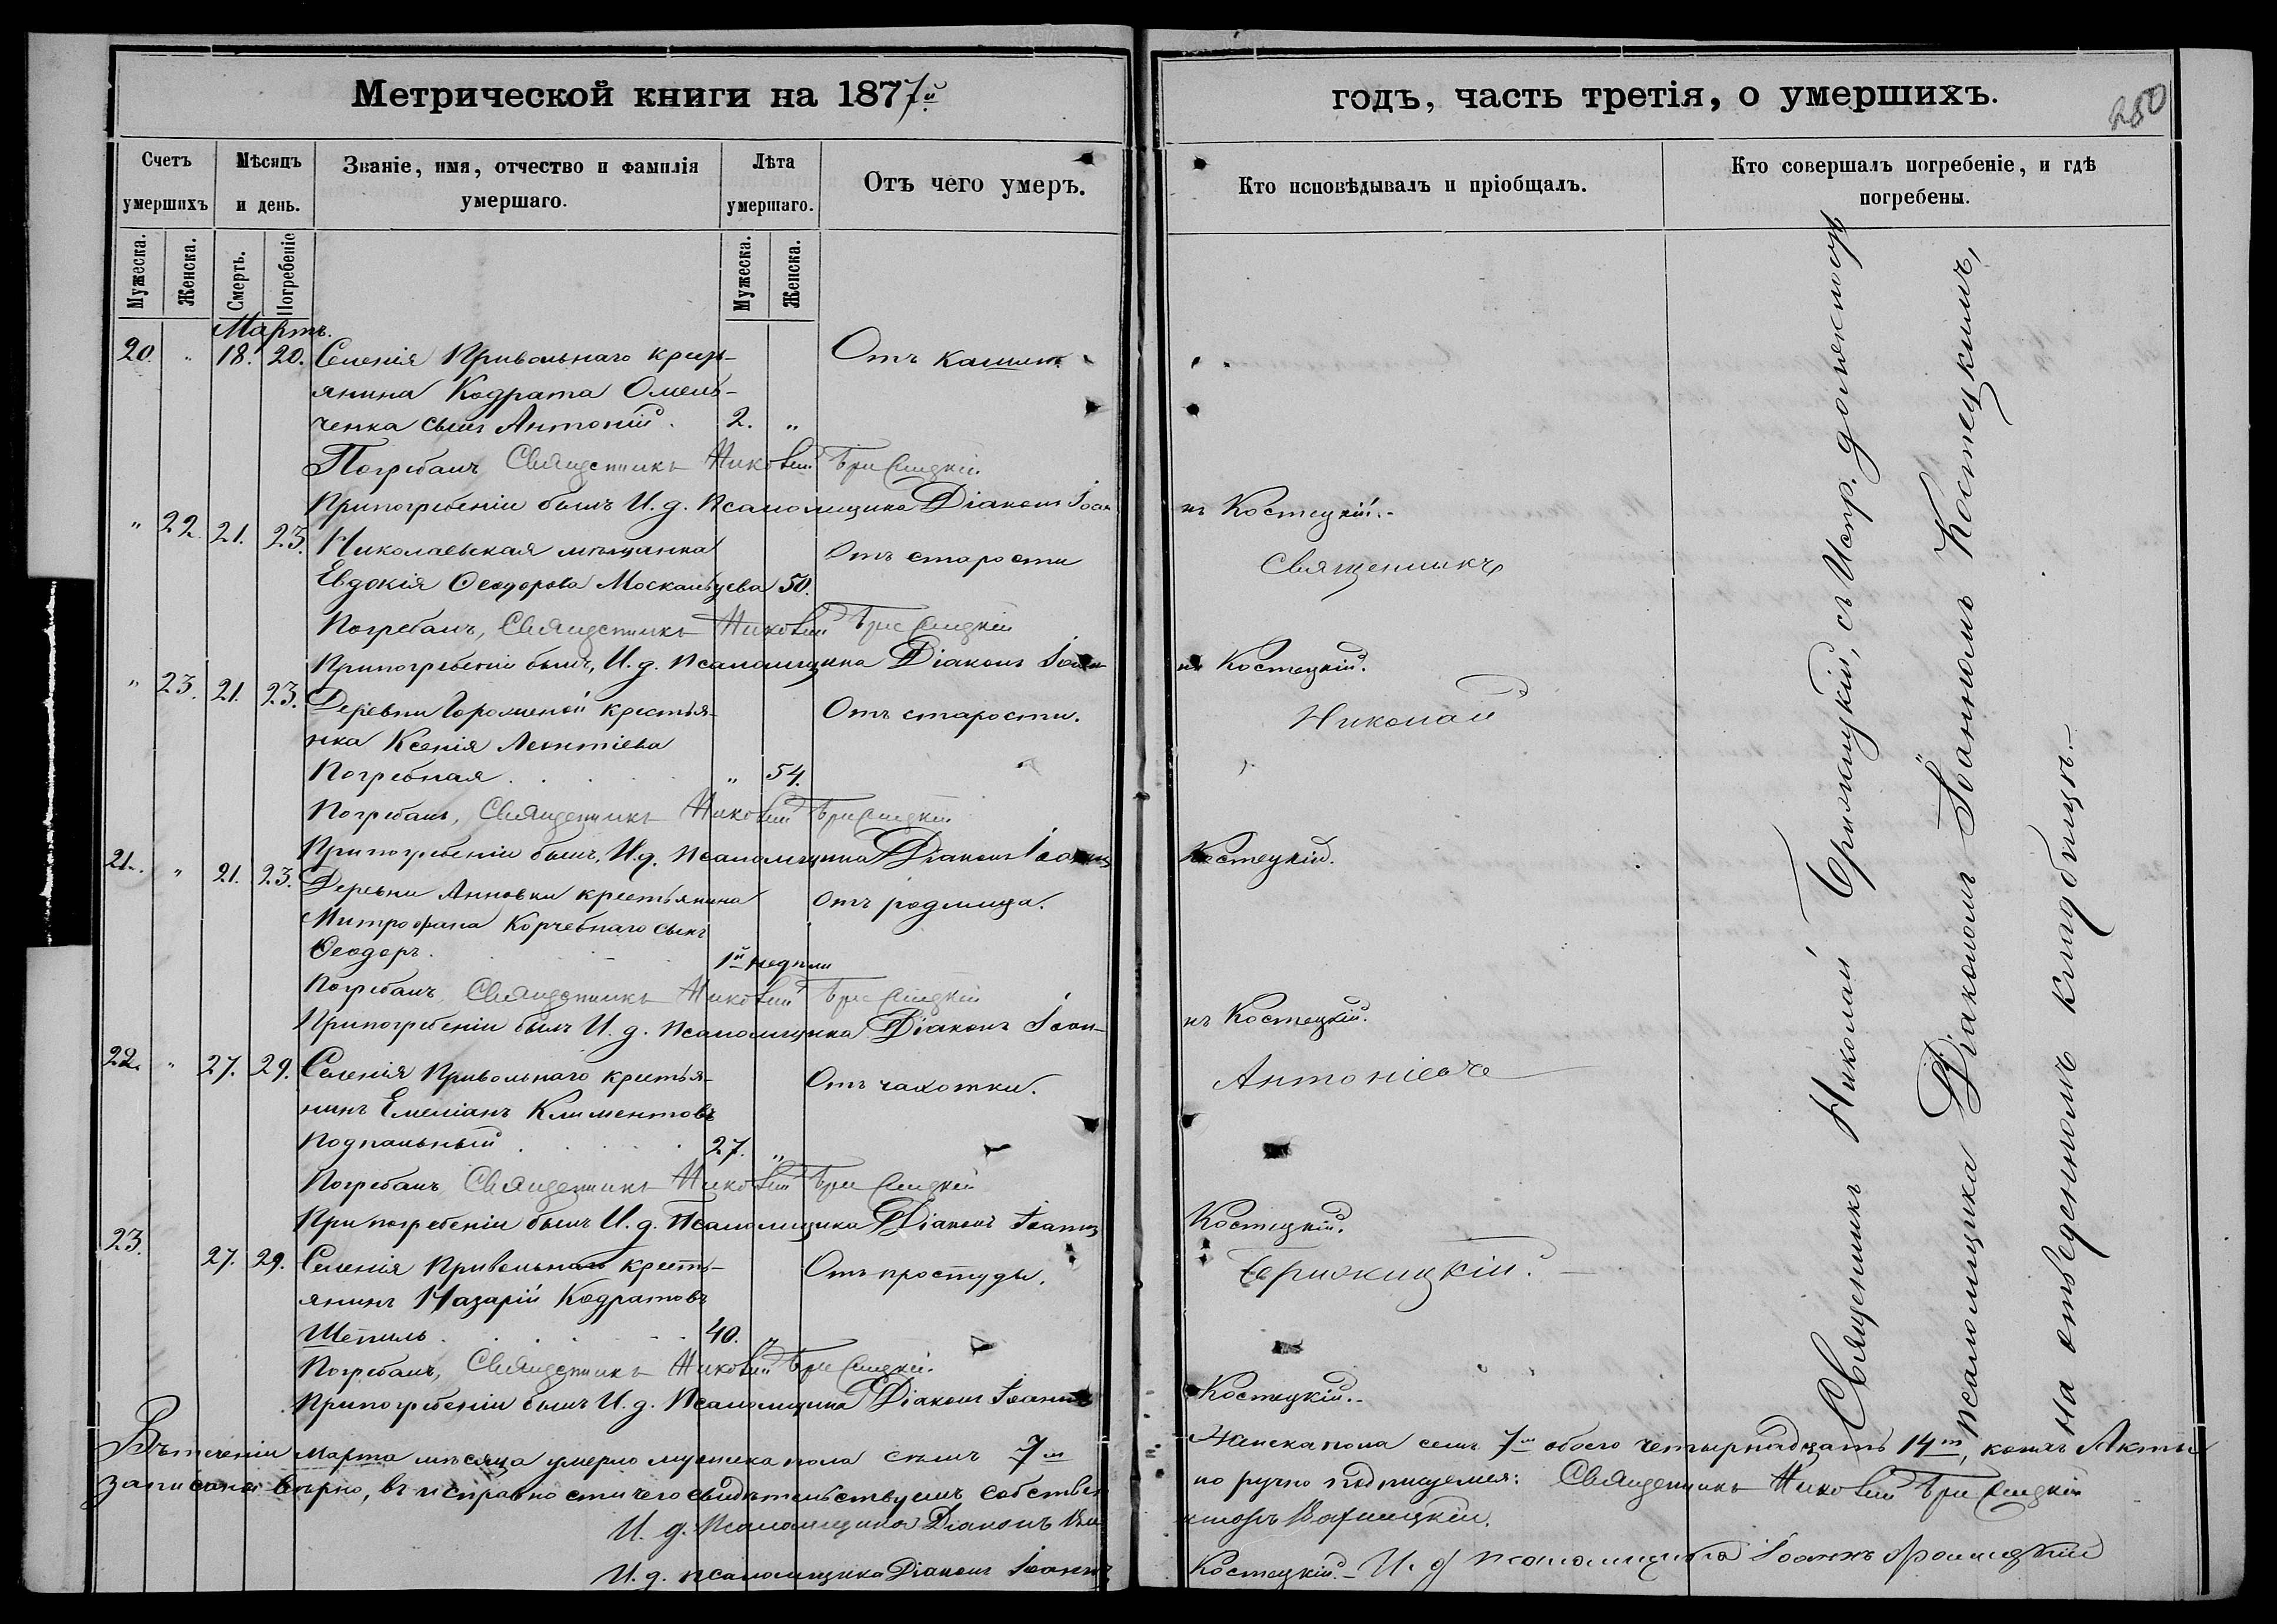 Метрической книги на 1877й
Счетъ умершихъ
Мѣсяцъ и день.
Званіе, имя, отчество и фамилія умершаго.
Лѣта умершаго.
Отъ чего умеръ.
Мужеска.
Женска.
Смерть.
Погребеніе
Мужеска.
Женска.
Мартъ.
20. " 18. 20. Селенія Привольнаго крест-
Отъ кашля
янина Кодрата Омель-
ченка сынъ Антоній. 2. "
Погребалъ Священникъ Николай Брижицкій
При погребеніи былъ И. д. Псаломщика Діаконъ Іоан
" 22. 21. 23. Николаевская мѣщанка
Отъ старости
Евдокія Ѳеодорова Москальцева 50.
Погребалъ, Священникъ Николай Брижицкій
При погребеніи былъ, И. д. Псаломщика Діаконъ Іоан-
" 23. 21. 23. Деревни Гороженой крестья-
Отъ старости.
нка Ксенія Леонтіева
Погребная . . . " 54.
Погребалъ, Священникъ Николай Брижицкій
При погребеніи былъ, И. д. Псаломщика Діаконъ Іоаннъ
21. " 21. 23. Деревни Анновки крестьянина
Отъ родимца.
Митрофана Корчебнаго сынъ
Ѳеодоръ. 1й недѣли
Погребалъ Священникъ Николай Брижицкій
При погребеніи былъ И. д. Псаломщика Діаконъ Іоан-
22. " 27. 29. Селенія Привольнаго крестья-
Отъ чахотки.
нинъ Емеліанъ Климентовъ
Подпальный . . . 27. "
Погребалъ Священникъ Николай Брижицкій
При погребеніи былъ И. д. Псаломщика Діаконъ Іоаннъ
23. 27. 29. Селенія Привольнаго кресть-
Отъ простуды.
янинъ Назарій Кодратовъ
Шепиль . . . 40. "
Погребалъ, Священникъ Николай Брижицкій.
При погребеніи былъ И. д. Псаломщика Діаконъ Іоаннъ
Въ теченіи марта мѣсяца умерло мужеска пола семь 7м
записано вѣрно, въ исправности чего свидѣтельствуемъ собствен
И. д. Псаломщика Діаконъ
И. д. псаломщика Діаконъ Іоаннъ
годъ, часть третія, о умершихъ.
280
Кто исповѣдывалъ и пріобщалъ.
Кто совершалъ погребеніе, и гдѣ погребены.
нъ Костецкій.-
Священникъ
нъ Костецкій.
Николай
Костецкій.
нъ Костецкій.
Антоніевъ
Костецкій.
Брижицкій.
Костецкій.-
Священникъ Николай Брижицкій, съ Испр. должность
псаломщика Діакономъ Іоанномъ Костецкимъ,
на отведенномъ кладбищѣ.-
Женска пола семь 7м обоего четырнадцать 14т, Акты
но ручно подписуемся: Священникъ Николай Брижицкій
Костецкій.- И. д псаломщика Іоаннъ